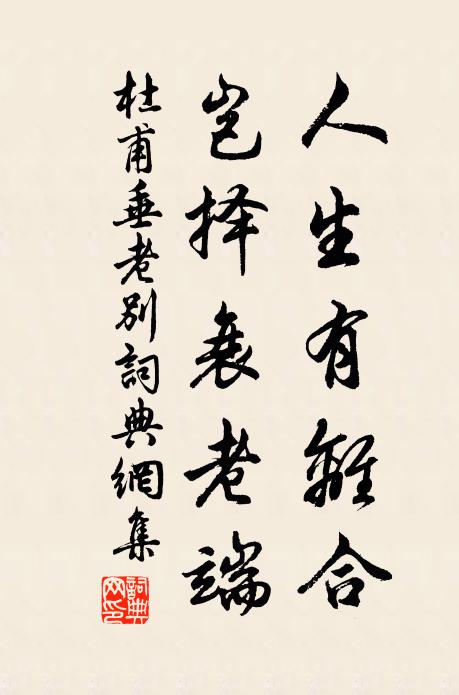 人生有離合
岂择衰老端
杜甫垂老别詞典網集
詞典网印